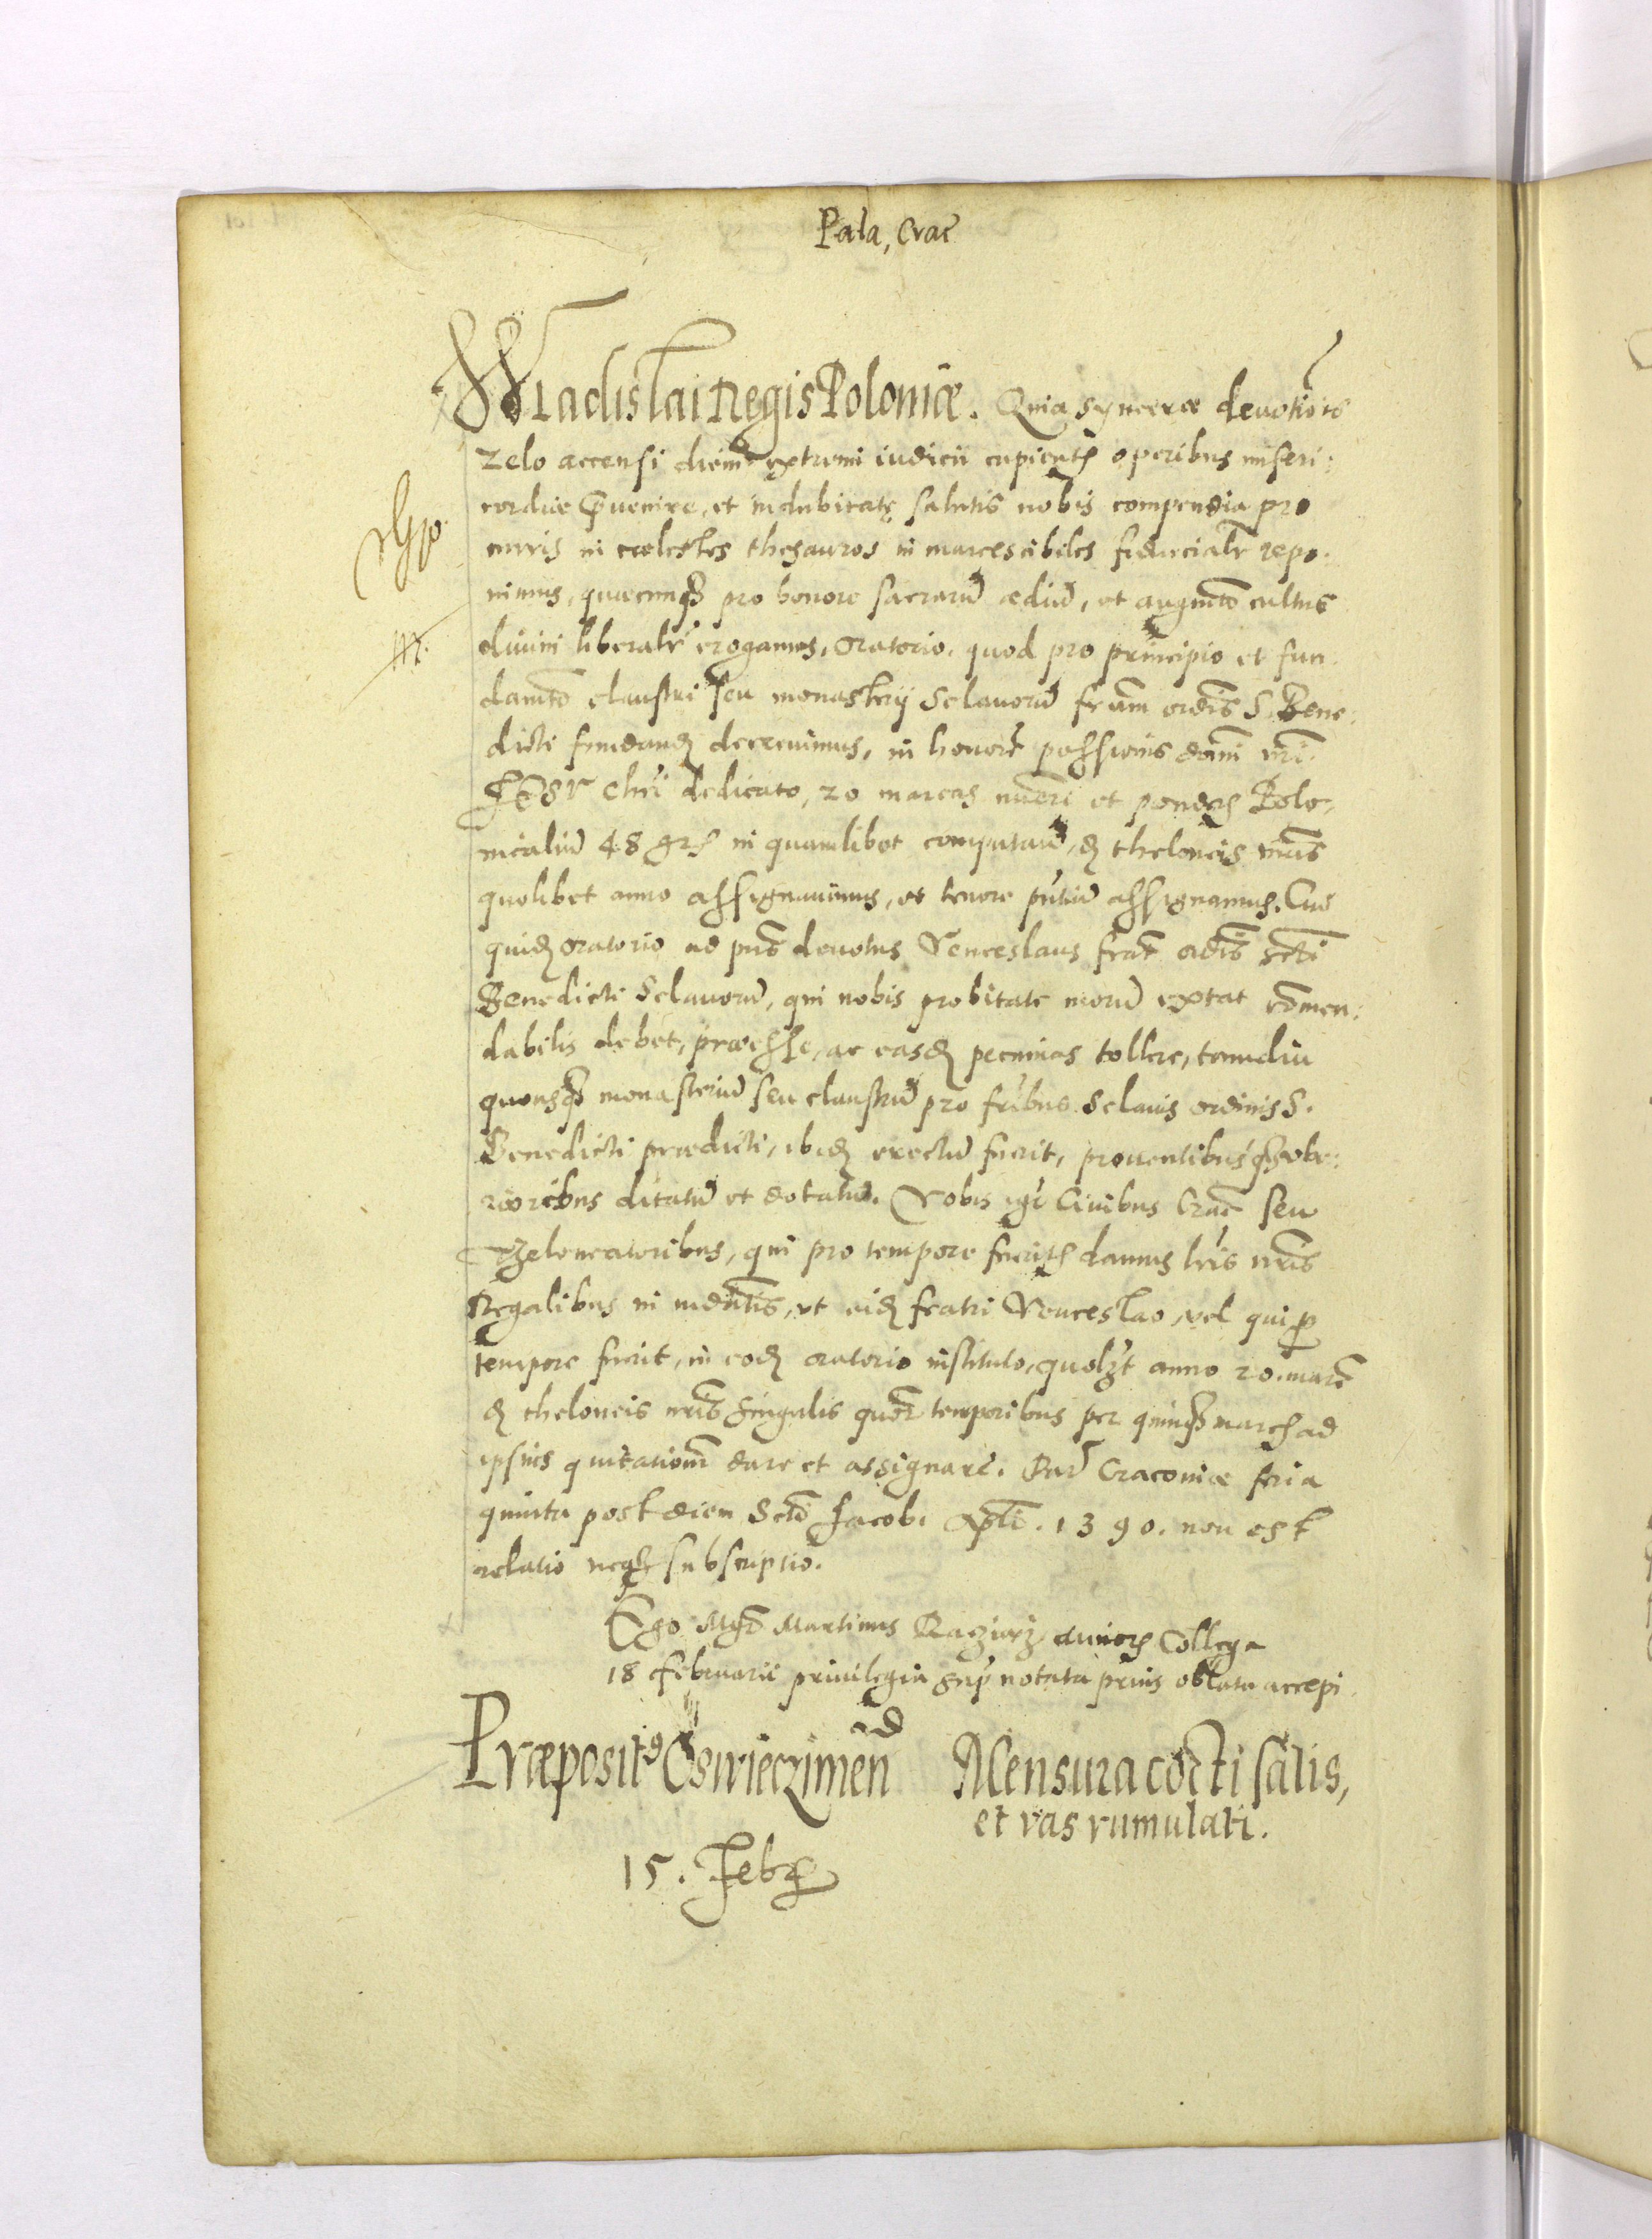 Pala, Crac̃
Wladislai Regis Poloniæ. Quia synceræ deuotionis
zelo accensi diem extremi iudicii cupientes operibus miseri:
cordiæ p̃uenire, et indubitatę salutis nobis compendia pro
curis in cœlestes thesauros in marcescibiles fiducialr̃ repo.
nimus, quæcunq̃ pro honore sacrarũ ædiũ, et augm̃to cultus
diuini liberalr̃ erogamus, Oratorio, quod pro principio et fun.
dam̃to claustri seu monasterij Sclauorũ fr̃um ordĩs S. Bene:
dicti fundandȝ decreuimus, in honorẽ passionis dom̃i nr̃i.
IESV Chr̃i dedicato, 20 marcas nũeri et ponderis Polo:
nicaliũ 48 grs̃ in quamlibet computandȝ, de theloneis nr̃is
quolibet anno assignauimus, et tenore pñtiũ assignamus. Cui
quidȝ oratorio ad pñs deuotus Venceslaus frat̃ ordĩs Scti
Benedicti Sclauorũ, qui nobis probitate morũ extat cõmen:
dabilis debet, præesse, ac easdȝ pecunias tollere, tamdiu
quousq̃ monasteriũ seu claustrũ pro fr̃ibus Sclauis ordinis S.
Benedicti prædicti, ibidȝ erectũ fuerit, prouentibusq̃ vbe:
rioribus ditatũ et dotatũ. Vobis igr̃ Ciuibus Crac̃ seu
Theloneatoribus, qui pro tempore fuerit̃ damus lr̃is nr̃is
Regalibus in mdãtis, vt eidȝ fratri Venceslao, vel qui p
tempore fuerit, in eodȝ oratorio instituto, quolȝt anno 20. marc̃
de theloneis nr̃is singulis quõr temporibus per quinq̃ marcas ad
ipsius quitationẽ dare et assignare. Dat̃ Cracouiæ feria
quinta post diem Scti Jacobi Apl̃i. 1390. non est
relatio neqȝ subscriptio.
Ego Mgr̃ Martinus Raziusz Iunioris Collega
18 Februarii priuilegia sup̃ notata prius oblata accepi
Præposit9 Oswieczimen̄ Mensura cocti salis,
et vas rumulati.
15. Febr̃